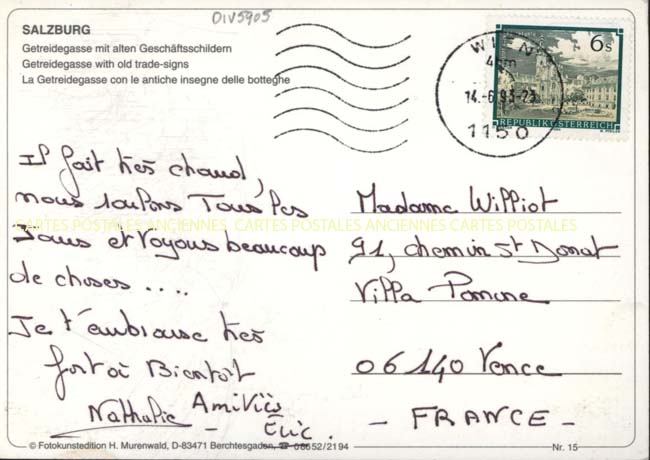 DIV5905
SALZBURG
Getreidegasse mit alten Geschäftsschildern
Getreidegasse with old trade-signs
La Getreidegasse con le antiche insegne delle botteghe
WIEN
14.-6.93-23
1150
6s
REPUBLIK ÖSTERREICH
Il fait très chaud,
nous Tous les
Jours et Voyons beaucoup
de choses ....
Je t'embrasse très
fort à Bientôt
Nathalie Amitiés
Eric.
Madame Williot
91, chemin St Donat
Villa Pomone
06140 Vence
- FRANCE -
CARTES POSTALES ANCIENNES CARTES POSTALES ANCIENNES CARTES POSTALES
© Fotokunstedition H. Murenwald, D-83471 Berchtesgaden, ☎ 08652/2194
Nr. 15